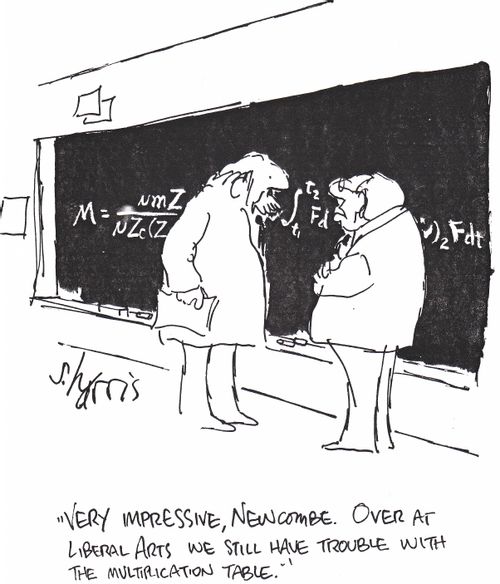 M = NmZ / NZc(Z ∫ t2 t1 Fd v)2 Fdt
s.harris
"VERY IMPRESSIVE, NEWCOMBE. OVER AT
LIBERAL ARTS WE STILL HAVE TROUBLE WITH
THE MULTIPLICATION TABLE."